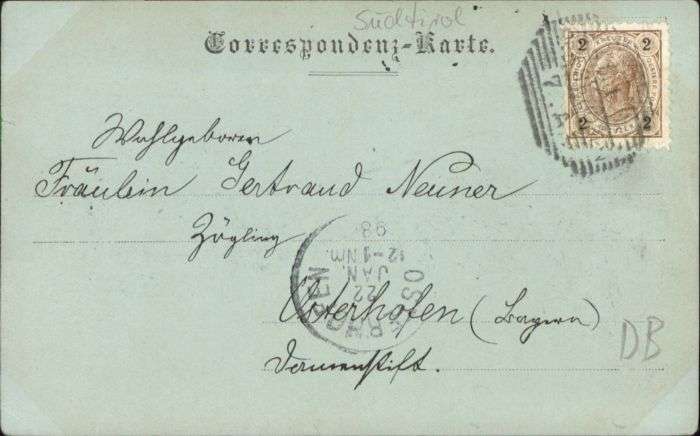 Südtirol
Correspondenz-Karte.
2 2
2 2
Wohlgeboren
Fräulein Gertraud Neuner
Zögling
98
12-1 Nm.
JAN.
22
OSTERHOFEN
Osterhofen (Bayern)
DB
Damenstift.